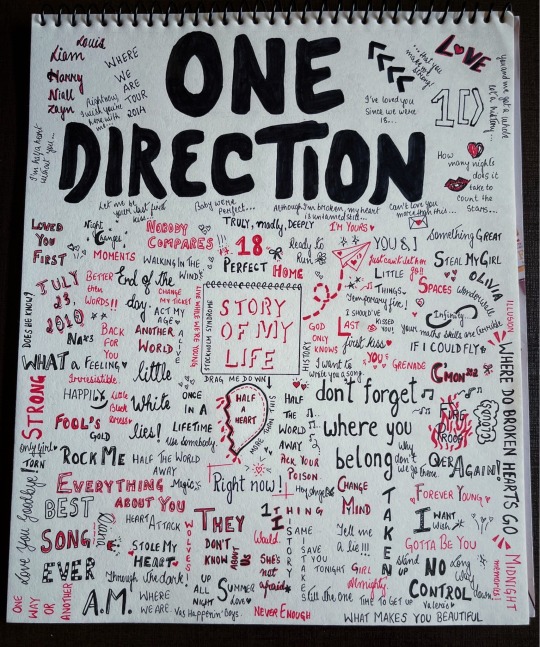 ONE
DIRECTION
Louis
Liam
Harry
Niall
Zayn
WHERE
WE
ARE
TOUR
2014
Right now
I wish you're
here with
me...
I'm half a heart
without you...
...that you
make me
strong!
I've loved you
Since we were
18...
LOVE
1D
you and me got a whole
lot of history...
How
many nights
does it
take to
count the
Stars...
Let me be
your last first
kiss...
Baby we're
Perfect...
Although I'm broken, my heart
is untamed still...
Can't love you
more than this...
LOVED
YOU
FIRST
Night
Changes
NOBODY
COMPARES
TRULY, madly, DEEPLY
I'M YOURS
18
Ready to
Run
YOU & I
Something GREAT
STEAL MY GIRL
MOMENTS
WALKING IN THE
WIND
PERFECT HOME
Just can't let him
go!!
LITTLE
THINGS
SPACES
OLIVIA
Wonderwall
DOES HE KNOW?
JULY
23,
2010
BETTER
than
WORDS!!
End of the
day.
CHANGE
MY TICKET
ACT MY
AGE
LIVE WHILE WE'RE YOUNG
STOCKHOLM SYNDROME
STORY
OF MY
LIFE
HISTORY
Temporary fix!
I SHOULD'VE
KISSED
YOU!
Infinity
ILLUSION
Na Na
Na
BACK
FOR
YOU
ANOTHER
WORLD
ALIVE
GOD
ONLY
KNOWS
LAST
first kiss
IF I COULD FLY
WHAT a FEELING
Irresistible
little
White
lies!
DRAG ME DOWN
I want to
write you a song
YOU'S
GRENADE
C'mon
STRONG
HAPPILY
Little
Black
Dress
HALF
A
HEART
MORE THAN THIS
HALF
THE
WORLD
AWAY
don't forget
where you
belong
FIRE
PROOF
WHERE DO BROKEN HEARTS GO
FOOL'S
GOLD
ONCE
IN A
LIFETIME
Use Somebody
Only Girl
TORN
ROCK ME
HALF THE WORLD
AWAY
PICK YOUR
POISON
Why
don't
we go there
OVER AGAIN!
EVERYTHING
ABOUT YOU
Magic
Right now!
Hey Angel
CHANGE
MY
MIND
TAKEN
FOREVER YOUNG
Love You Goodbye!
BEST
SONG
EVER
HEART ATTACK
Diana
STOLE MY
HEART
WOLVES
THEY
DON'T
KNOW
ABOUT
US
1 THING
I
Would
She's
not
afraid
SAME
MISTAKES
SAVE
YOU
TONIGHT
Tell me
a lie!!!
GIRL
Almighty
I
WANT
Wish
GOTTA BE YOU
Stand
UP
NO
CONTROL
Long
Way
down
MIDNIGHT
memories!
ONE
WAY
OR
ANOTHER
A.M.
Through the dark!
WHERE
WE ARE
UP
ALL
NIGHT
SUMMER
Love
Still the one
TIME TO GET UP
Valerie
Vas Happenin' Boys
NEVER ENOUGH
WHAT MAKES YOU BEAUTIFUL